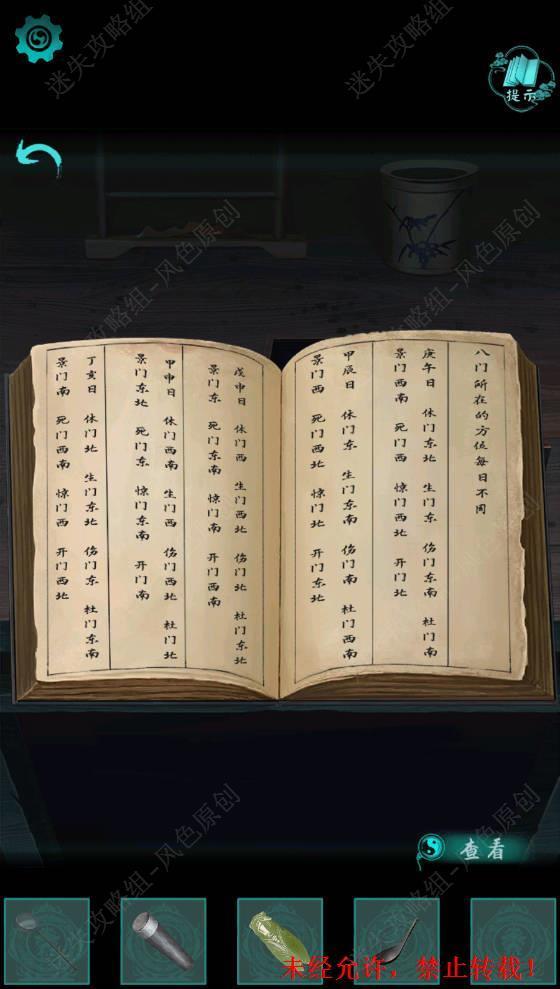 提示
八门所在的方位每日不同
庚午日 休门东北 生门东 伤门东南 杜门南
景门西南 死门西 惊门西北 开门北
甲辰日 休门东 生门东南 伤门南 杜门西南
景门西 死门西北 惊门北 开门东北
戊申日 休门西 生门西北 伤门北 杜门东北
景门东 死门东南 惊门南 开门西南
甲申日 休门西南 生门西 伤门西北 杜门北
景门东北 死门东 惊门东南 开门南
丁亥日 休门北 生门东北 伤门东 杜门东南
景门南 死门西南 惊门西 开门西北
查看
未经允许，禁止转载！
迷失攻略组-风色原创